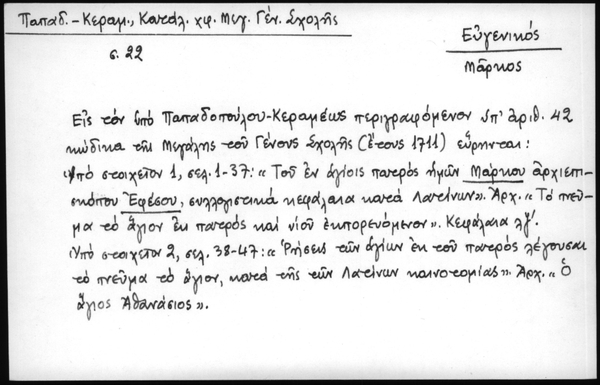 Παπαδ.-Κεραμ., Κατάλ. χφ. Μεγ. Γέν. Σχολῆς
σ. 22
Εὐγενικός
Μᾶρκος
Εἰς τὸν ὑπὸ Παπαδοπούλου-Κεραμέως περιγραφόμενον ὑπ' ἀριθ. 42
κώδικα τῆς Μεγάλης τοῦ Γένους Σχολῆς (ἔτους 1711) εὕρηνται:
Ὑπὸ στοιχεῖον 1, σελ. 1-37: «Τοῦ ἐν ἁγίοις πατρὸς ἡμῶν Μάρκου ἀρχιεπι-
σκόπου Ἐφέσου, συλλογιστικὰ κεφάλαια κατὰ Λατίνων». Ἀρχ. «Τὸ πνεῦ-
μα τὸ ἅγιον ἐκ πατρὸς καὶ υἱοῦ ἐκπορευόμενον». Κεφάλαια λζ'.
Ὑπὸ στοιχεῖον 2, σελ. 38-47: «Ῥήσεις τῶν ἁγίων ἐκ τοῦ πατρὸς λέγουσαι
τὸ πνεῦμα τὸ ἅγιον, κατὰ τῆς τῶν Λατίνων καινοτομίας». Ἀρχ. «Ὁ
ἅγιος Ἀθανάσιος».